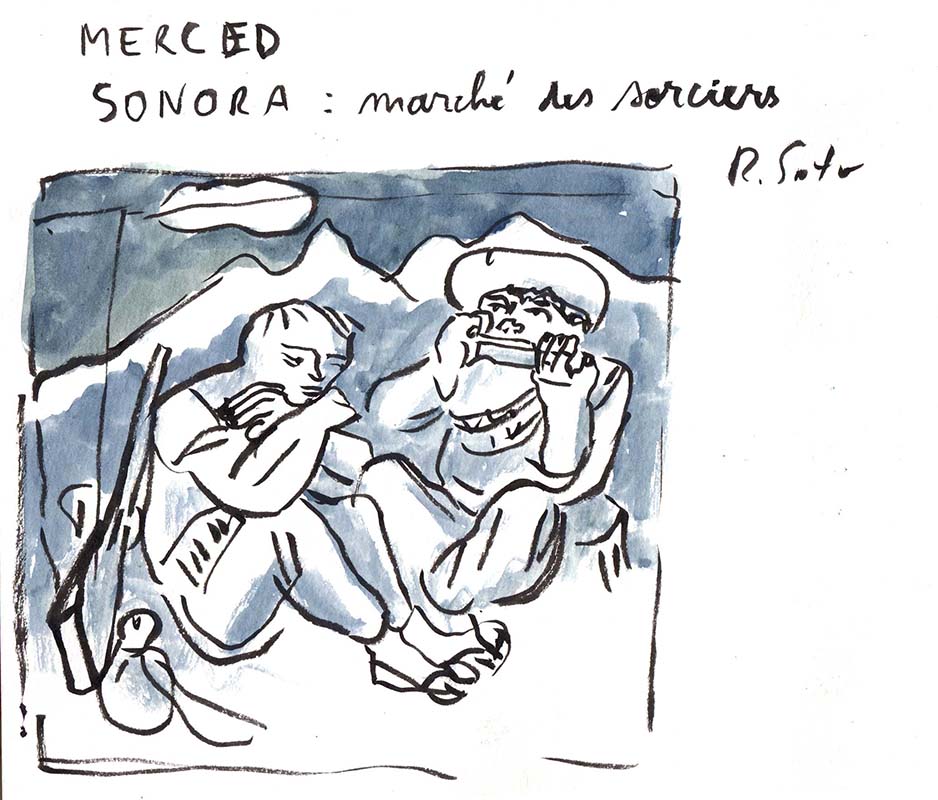 MERCED
SONORA : marché des sorciers
R. Soto